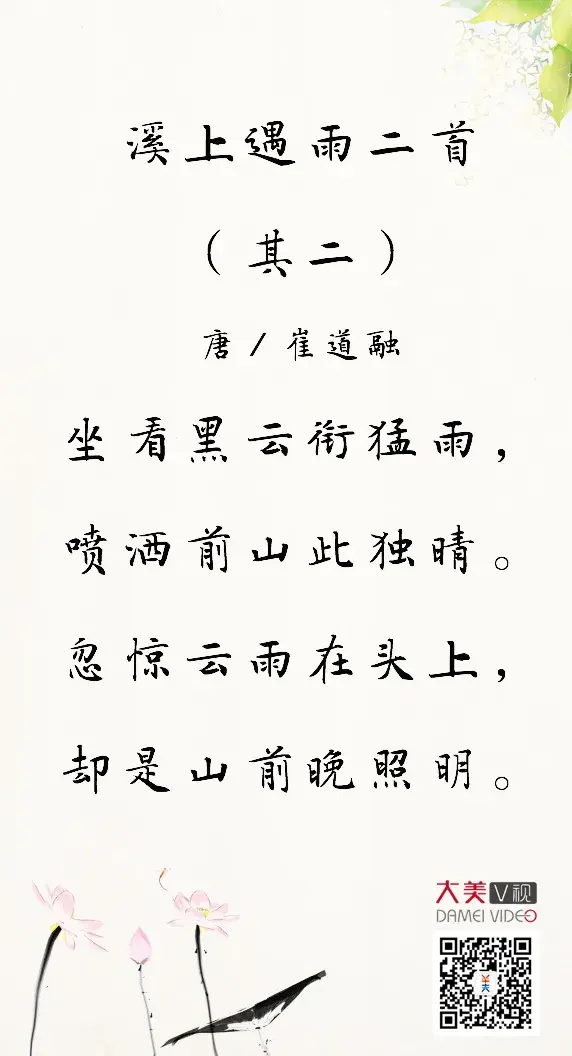 溪上遇雨二首
（其二）
唐/崔道融
坐看黑云衔猛雨，
喷洒前山此独晴。
忽惊云雨在头上，
却是山前晚照明。
大美V视
DAMEI VIDEO
美